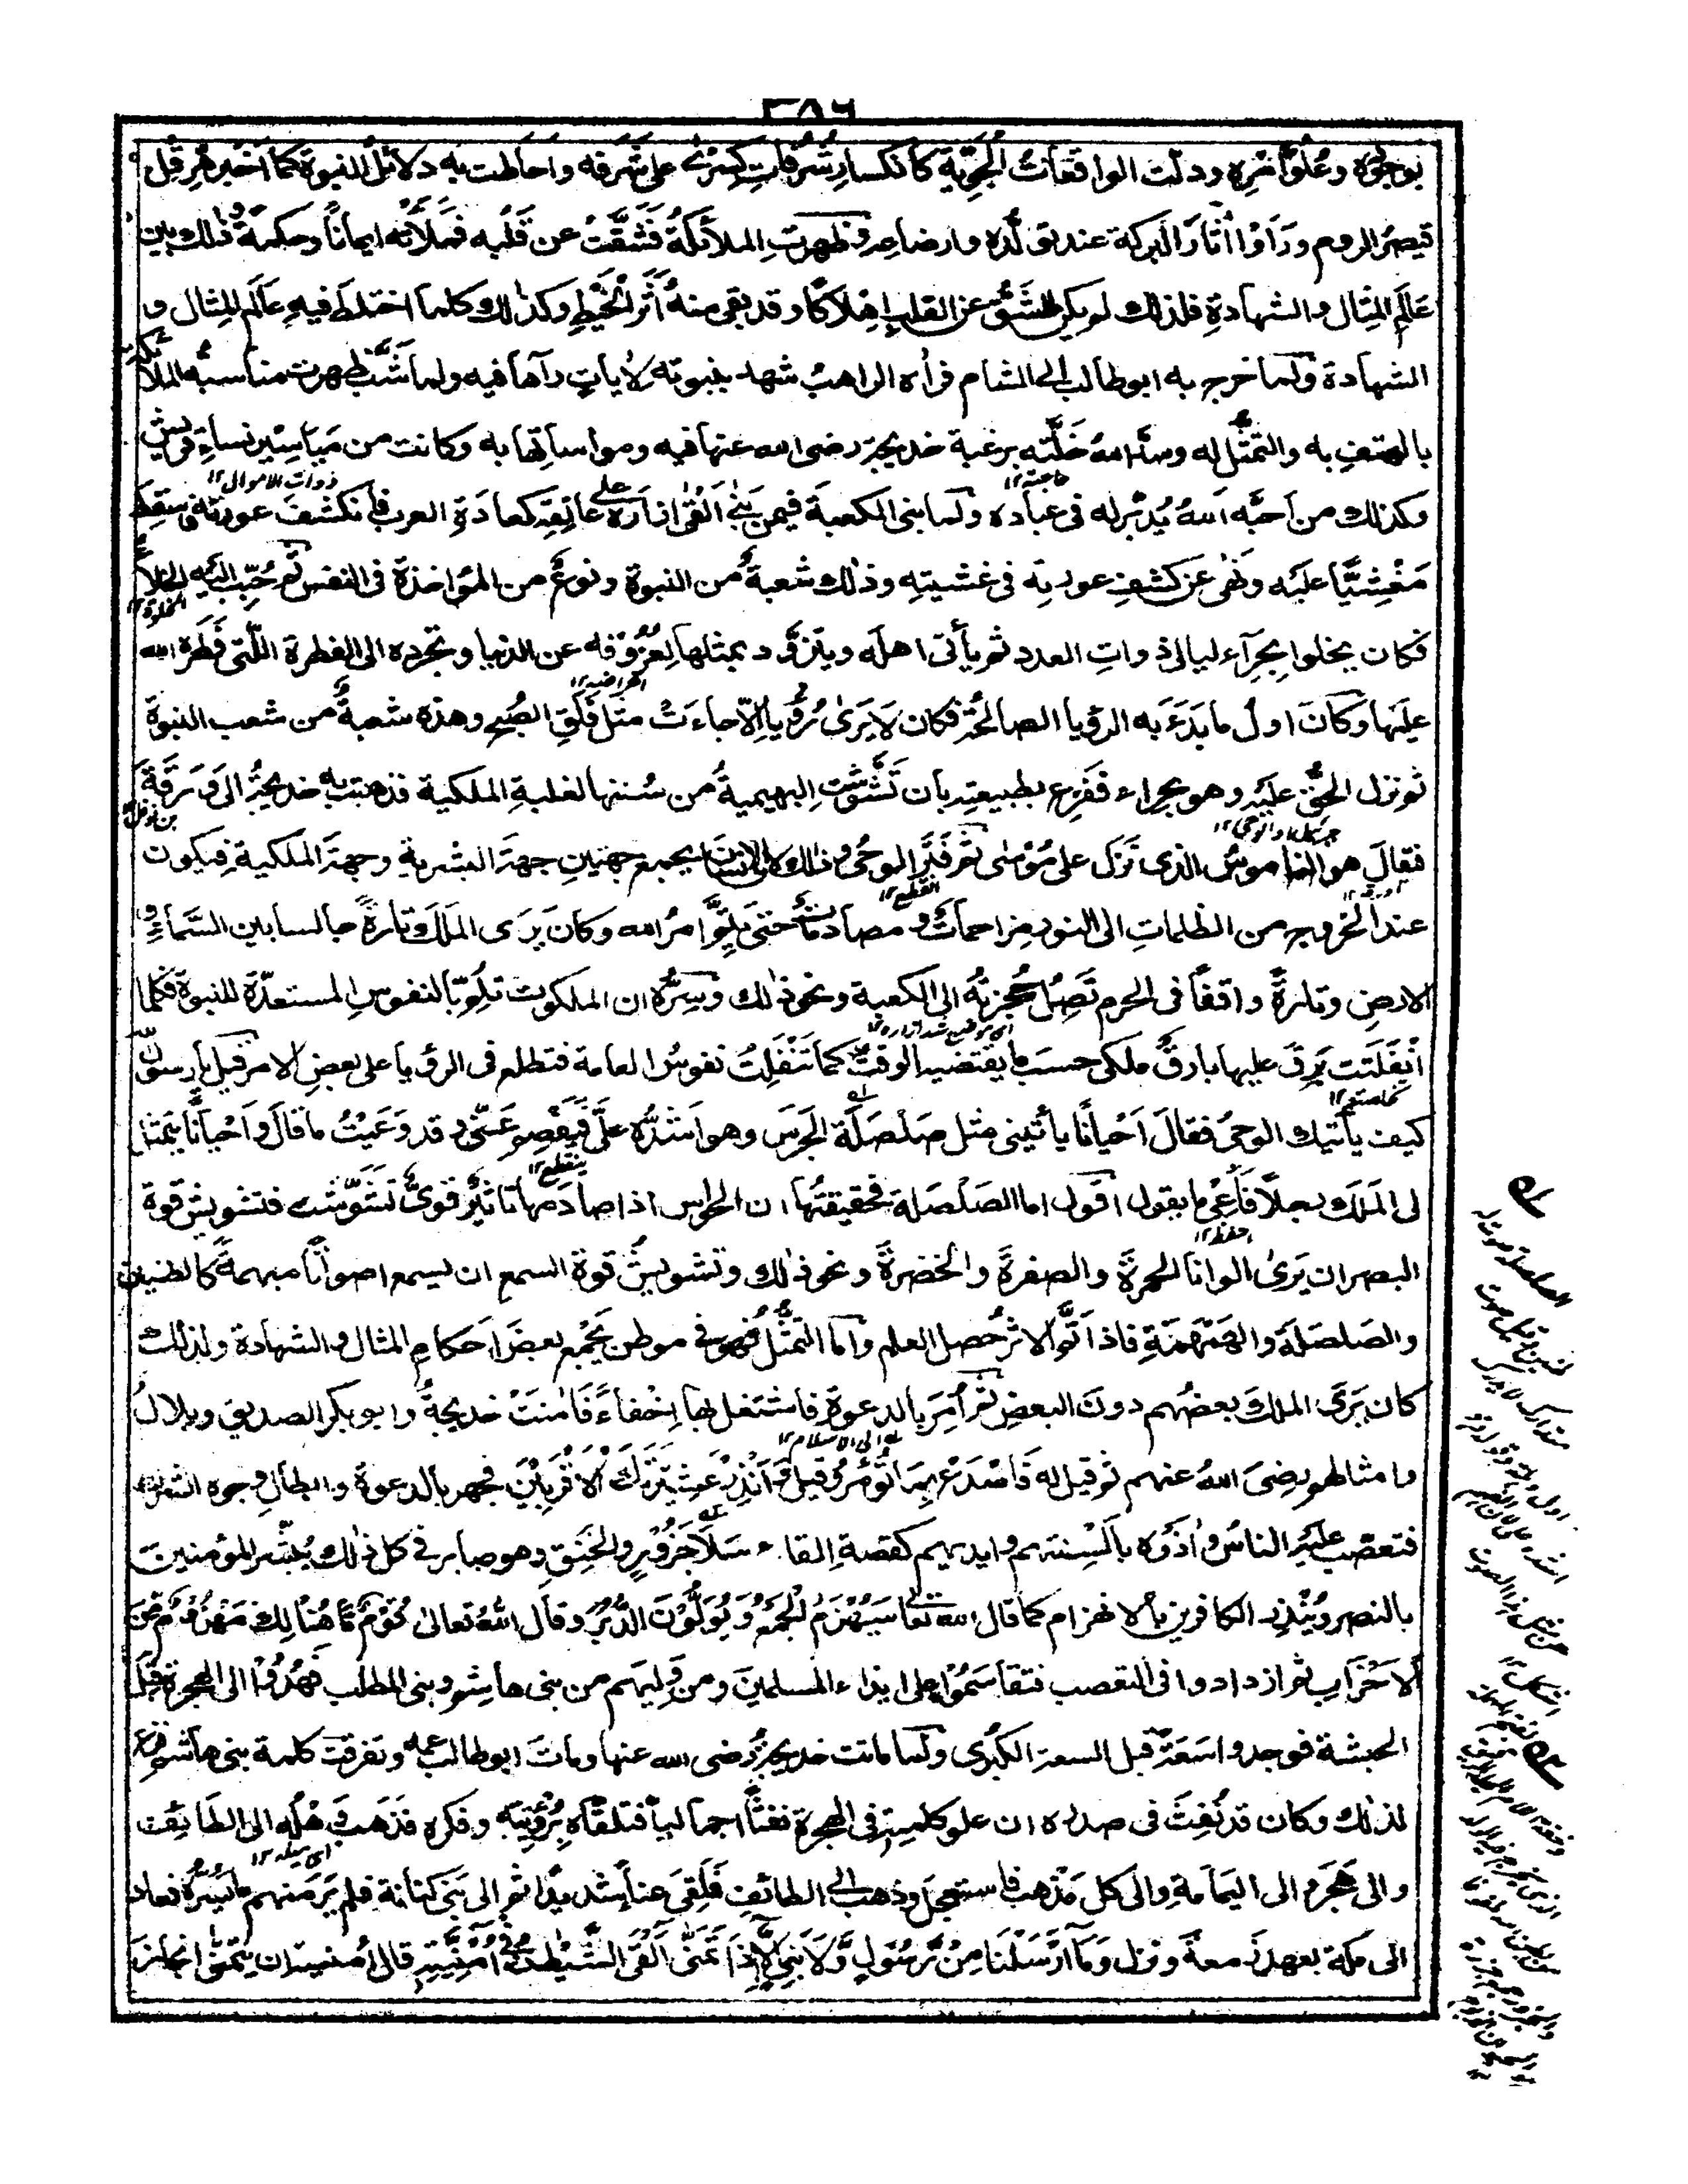 ٣٨٦
بوجوده وعُلوِّ امْرِه ودلّت الواقعاتُ الجوّيةُ كانكسارِ شُرُفاتِ كِسْرٰى على شَرَفه واحاطت به دلائلُ النبوة كما اخبر هِرقل
قيصرُ الروم ورَأوْا اٰثارَ البركة عند تولّده وارضاعه وظهرتِ الملائكةُ فشقّتْ عن قلبه فملأته ايماناً وحكمةً وذلك بين
عالَمِ المثال والشهادةِ فلذلك لم يكن الشقُّ عن القلب اهلاكًا وقد بقى منهُ أثرُ المخيط وكذلك كلما اختلط فيهِ عالَم المثال و
الشهادة ولما خرج به ابو طالب الى الشام فرأه الراهبُ شهد بنبوته لأياتٍ رآها فيه ولما شَبَّ ظهرت مناسبةُ الملائكة
بالهتفِ به والتمثّل له وسدَّ اللهُ خَلَّتَه برغبة خديجة رضى الله عنها فيه ومواساتِها به وكانت من مَيَاسيْرِ نساءِ قريش
حاجته١٢ ذوات الاموال١٢
وكذلك من احبَّه اللهُ يُدبّر له فى عباده ولما بنى الكعبةَ فيمن بَنٰى اَلْقٰى ازارَه على عاتِقِه كعادَةِ العرب فانكشفَ عورتُه فسَقَط
مَغْشِيًّا عليه ونُهِى عن كشفِ عورتِه فى غشيتِه وذلك شعبةٌ من النبوة ونوعٌ من المؤاخذة فى النفس ثم حُبِّب اليه الخلاءُ
الخلوة١٢
فكان يخلوا بحِرَاء ليالى ذواتِ العدد ثم يأتى اهلَه ويتزوَّد بمثلها لِعُزُوفه عن الدنيا وتجرده الى الفطرة اللّتى فَطَره الله
اعراضه١٢
عليها وكانَ اولُ ما بَدَءَ به الرؤيا الصالحةُ فكان لا يَرىٰ رُؤيا اِلّا جاءَتْ مثلَ فَلَقِ الصُبح وهذه شعبةٌ من شعب النبوة
ثم نزل الحقُّ عليه وهو بحِراء ففَزِع بطبيعتِه بان تشَوَّشتِ البهيميةُ من سُننها لغلبةِ الملكية فذهبت به خديجةُ الى وَرَقَةَ
بن نوفل١٢ جبرئيل او الوحى١٢
فقالَ هو الناموسُ الذى نزَل على مُوْسٰى ثم فَتَرَ الوحىُ وذلك لأن الانسانَ يجمع جهتينِ جهةَ البشرية وجهةَ الملكيةِ فيكون
انقطع١٢
عند الخروج من الظلماتِ الى النور مزاحماتٌ ومصادماتٌ حتى يَتِمَّ امرُ الله وكان يَرَى المَلَكَ تارةً جالسا بين السَّماءِ و
الارضِ وتارةً واقفاً فى الحرم تَصِلُ حُجزتُه الى الكعبة ونحو ذلك وسِرُّه ان الملكوت تلُوحُ بالنفوسِ المستعدّةِ للنبوة فكلما
اى موضع شد ازاره١٢
انْفَلَتت بَرِقَ عليها بارقٌ ملكى حسبَ ما يقتضيه الوقتُ كما تَنْفَلِتُ نفوسُ العامة فتطلع فى الرؤيا على بعضِ الامر قيل يا رسولَ اللّٰه
كيف يأتيك الوحىُ فقالَ اَحْيانًا يأتينى مثل صَلْصَلَةِ الجَرَس وهو اَشدُّه علىَّ فيَفْصِم عَنّى وقد وَعَيْتُ ما قالَ واَحْيانًا يتمثل
ينقطع١٢
لى المَلَك رجلًا فَأعِىْ ما يقول اقول اما الصَلْصَلة فحقيقتُها ان الحواس اذا صادَمها تاثيرٌ قوىٌّ تشَوَّشت فتشويشُ قوة
احفظ١٢
البصر ان يَرىٰ الوانا الحمرةَ والصفرةَ والخضرةَ ونحو ذلك وتشويشُ قوة السمع ان يسمع اصواتًا مبهمةً كالطنين
والصَلصَلَة والهَمْهَمَةِ فاذا تمَّ الاثرُ حصل العلم واما التمثُّل فهو فى موطن يَجْمع بعضَ احكامِ المثال والشهادة ولذلك
كان يَرَى الملكَ بعضُهم دونَ البعضِ ثم اُمِرَ بالدعوةِ فاشتغل بها اِخْفاءً فاٰمنَتْ خديجةُ وابو بكر الصديق وبلالٌ
اى الى الاسلام١٢
وامثالهم رضىَ اللهُ عنهم ثم قيل له فَاصْدَعْ بِمَا تُؤْمَرُ وقيل وَأَنْذِرْ عَشِيْرَتَكَ الْأَقْرَبِيْنَ فجهر بالدعوة وابطالِ وجوه الشرك
فتعصّب عليه الناسُ واٰذَوْه بأَلْسِنتهم وايديهم كقصةِ القاءِ سَلَا جَزُوْرٍ والخَنِقِ وهو صابر فى كل ذلك يُبشّر المؤمنينَ
بالنصر ويُنْذر الكافرين بالانهزام كما قال الله تعالٰى سَيُهْزَمُ الْجَمْعُ وَيُوَلُّوْنَ الدُّبُرَ وقال اللهُ تعالىٰ جُنْدٌ مَّا هُنَالِكَ مَهْزُوْمٌ مِّنَ
الْاَحْزَابِ ثم ازدادوا فى التعصب فتقاسَمُوا على ايذاء المسلمين ومن وَليهم من بنى هاشم وبنى المطلب فهُدُوْا الى الهجرة قِبَلَ
الحبشة فوجدوا سَعَةً قبل السعة الكبرى ولما ماتت خديجةُ رضى الله عنها وماتَ ابو طالب عمه وتفرقت كلمة بنى هاشم فزِع
لذلك وكان قد نُفِثَ فى صدره ان علو كلمتِه فى الهجرة نفثًا اجماليا فتلقّاه برَوِيَّتِه وفكره فذَهبَ وَهْلُه الى الطائف
اى ميله١٢
والى هَجَر والى اليَمامة والى كل مَذْهب فاستعجلَ وذهب الى الطائف فلَقِىَ عناءً شديدًا ثم الى بَنى كنانة فلم يَرَ منهم ما يَسُرُّه فعاد
الى مكة بعهد زمعةَ ونزل وَمَا أَرْسَلْنَا مِنْ رَّسُوْلٍ وَّلَا نَبِىٍّ اِلَّا اِذَا تَمَنّٰى اَلْقَى الشَّيْطٰنُ فِىْ اُمْنِيَّتِهٖ قال اُمنيتُه ان يتمنّٰى انجازَ